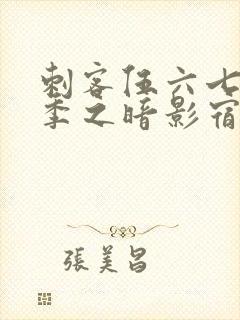 刺客伍六七
季之暗影宿
張美昌